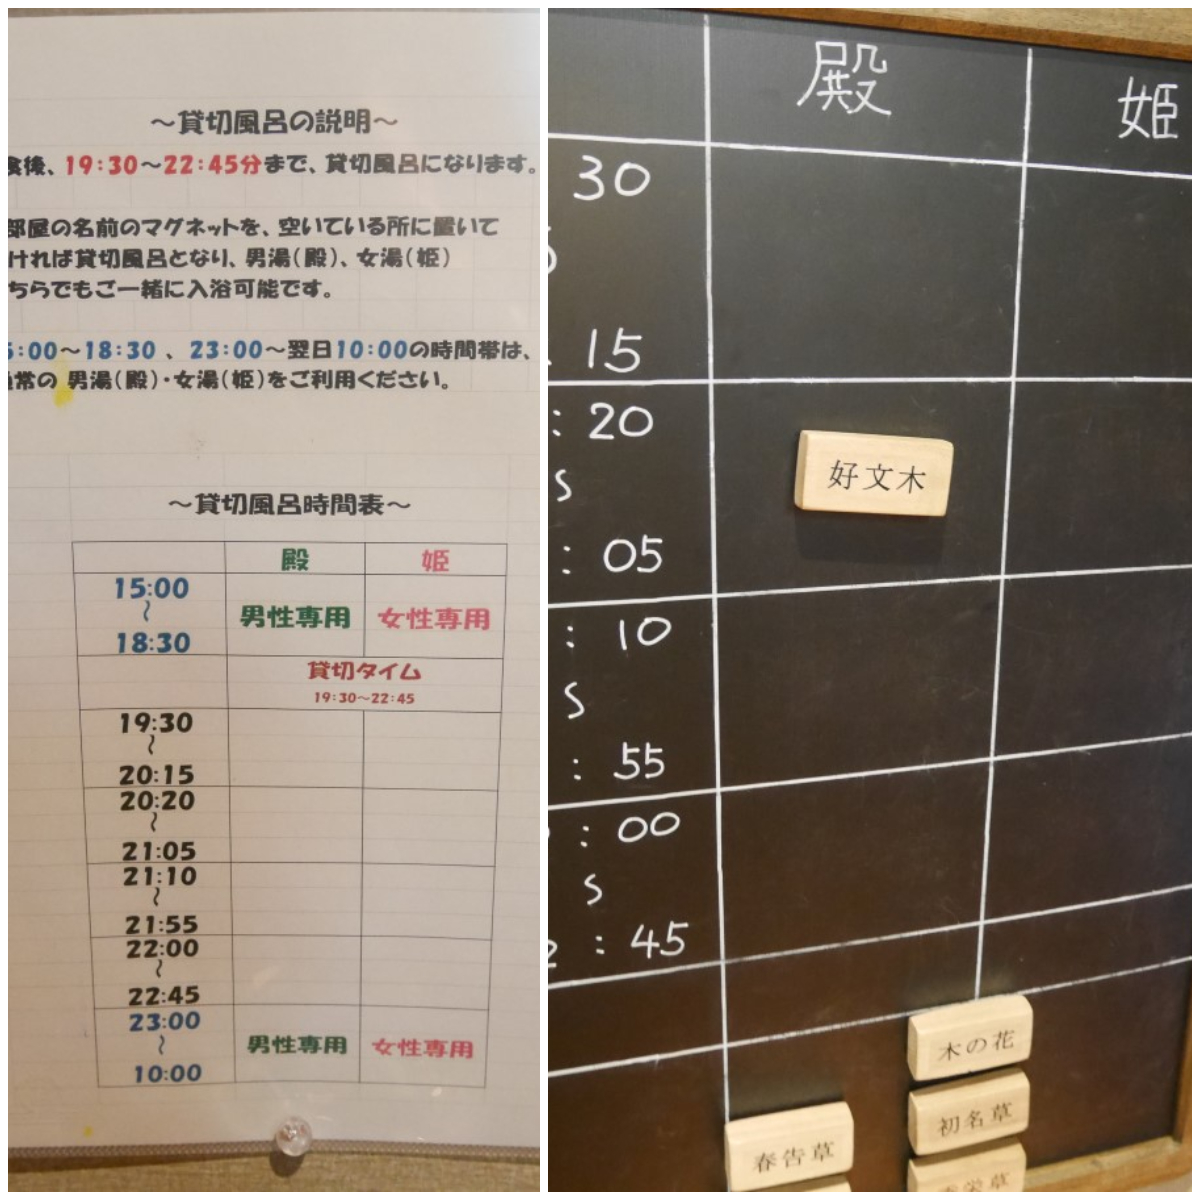 〜貸切風呂の説明〜
食後、19:30〜22:45分まで、貸切風呂になります。
部屋の名前のマグネットを、空いている所に置いて
ければ貸切風呂となり、男湯(殿)、女湯(姫)
ちらでもご一緒に入浴可能です。
5:00〜18:30 、23:00〜翌日10:00の時間帯は、
常の 男湯(殿)・女湯(姫)をご利用ください。
〜貸切風呂時間表〜
殿 姫
15:00
〜
18:30
男性専用 女性専用
貸切タイム
19:30〜22:45
19:30
〜
20:15
20:20
〜
21:05
21:10
〜
21:55
22:00
〜
22:45
23:00
〜
10:00
男性専用 女性専用
殿 姫
30
15
: 20
好文木
S
: 05
: 10
S
: 55
: 00
S
2 : 45
木の花
初名草
春告草